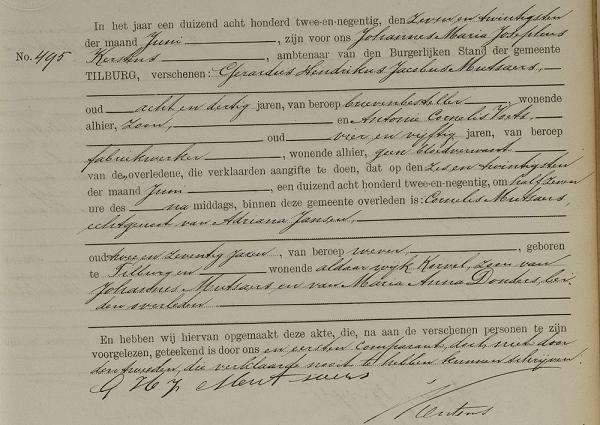 In het jaar een duizend acht honderd twee-en-negentig, den zeven en twintigsten
der maand Juni, zijn voor ons Johannes Maria Josephus
No. 495
Kerstens, ambtenaar van den Burgerlijken Stand der gemeente
TILBURG, verschenen: Gerardus Hendrikus Jacobus Mutsaers,
oud acht en dertig jaren, van beroep brievenbesteller wonende
alhier, zoon, en Antonie Cornelis
oud vier en vijftig jaren, van beroep
fabriekwerker, wonende alhier, geen bloedverwant
van de overledene, die verklaarden aangifte te doen, dat op den zes en twintigsten
der maand Juni, een duizend acht honderd twee-en-negentig, om half zeven
ure des na middags, binnen deze gemeente overleden is: Cornelis Mutsaers,
echtgenoot van Adriana Jansen,
oud twee en zeventig jaren, van beroep wever, geboren
te Tilburg en wonende aldaar wijk Korvel, zoon van
Johannes Mutsaers en van Maria Anna Donders, bei-
den overleden
En hebben wij hiervan opgemaakt deze akte, die, na aan de verschenen personen te zijn
voorgelezen, geteekend is door ons en eersten comparant, doch niet door
den tweeden, die verklaarde nooit te hebben kunnen schrijven.
G H J Mutsaers
Kerstens